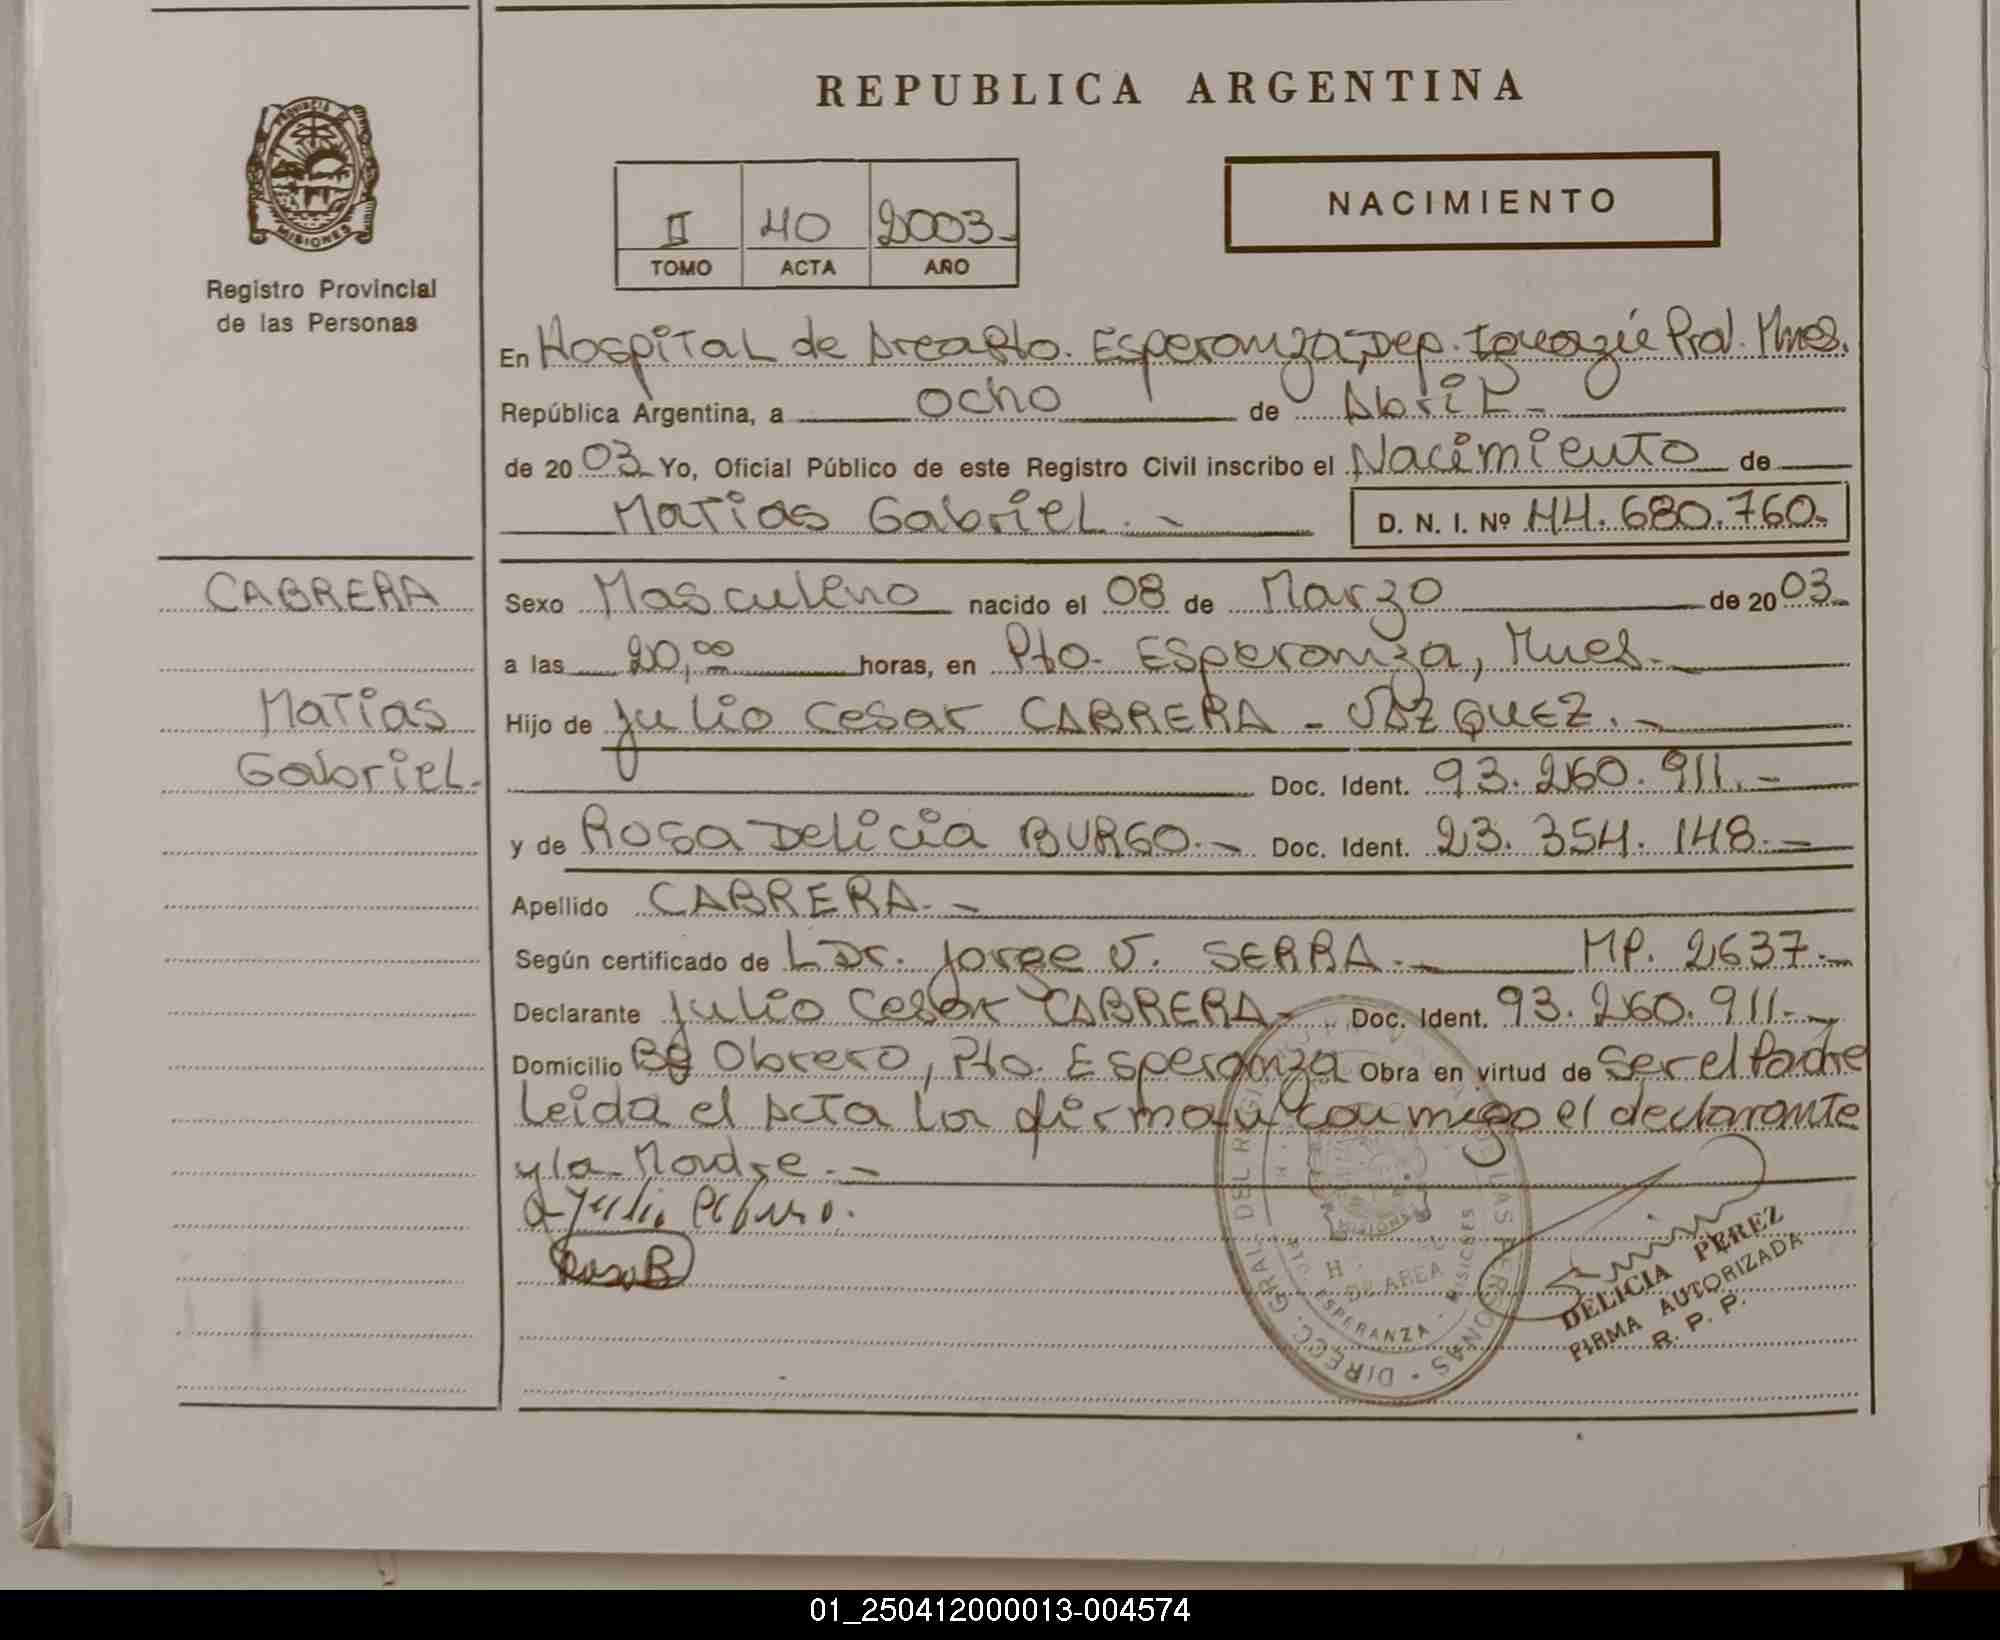 REPUBLICA ARGENTINA
PROVINCIA DE
MISIONES
Registro Provincial
de las Personas
II 40 2003-
TOMO ACTA AÑO
NACIMIENTO
En Hospital de Area Pto. Esperanza, Dep. Iguazú Prov. Mnes.
República Argentina, a ocho de Abril.-
de 2003 Yo, Oficial Público de este Registro Civil inscribo el Nacimiento de
Matias Gabriel.- D. N. I. Nº 44.680.760-
CABRERA
Matias
Gabriel-
Sexo Masculino nacido el 08 de Marzo de 2003-
a las 20,00 horas, en Pto. Esperanza, Mnes.-
Hijo de Julio Cesar CABRERA - VAZQUEZ.-
Doc. Ident. 93.260.911.-
y de Rosa Delicia BURGO.- Doc. Ident. 23.354.148.-
Apellido CABRERA.-
Según certificado de L Dr. Jorge V. SERRA.- MP. 2637.-
Declarante Julio Cesar CABRERA- Doc. Ident. 93.260.911.-
Domicilio Bº Obrero, Pto. Esperanza Obra en virtud de Ser el Padre
Leida el Acta la firman conmigo el declarante
y la Madre.-
Rosa B
DIRECC. GRAL. DEL REGISTRO LAS PERSONAS
H. DE AREA
PTO. ESPERANZA - MISIONES
MISIONES
DELICIA PEREZ
FIRMA AUTORIZADA
R. P. P.
01_250412000013-004574